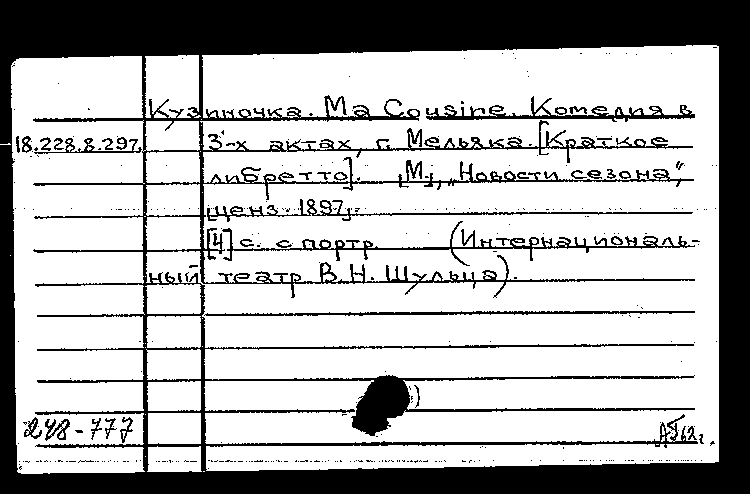 Кузиночка. Ma Cousine. Комедия в
18.228.8.297. 3-х актах, г. Мельяка. [Краткое
либретто]. [М.], „Новости сезона",
[ценз. 1897].
[4] с. с портр. (Интернациональ-
ный театр В.Н. Шульца).
248-777